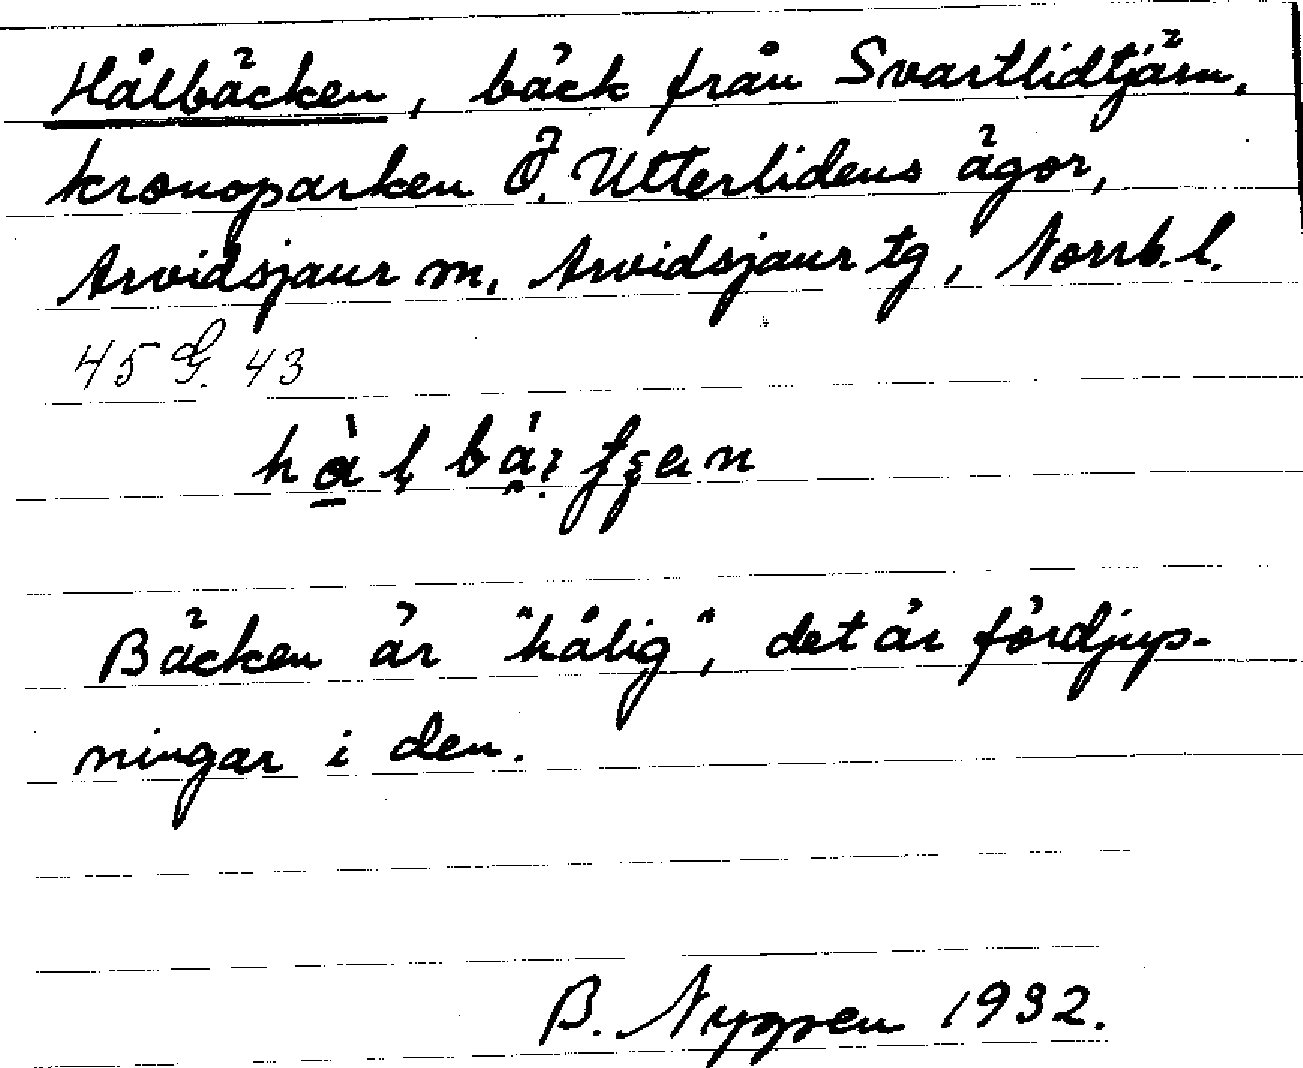 Hålbäcken, bäck från Svartlidtjärn,
kronoparken Ö. Utterlidens ägor,
Arvidsjaur m. Arvidsjaur tg, Norrb. l.
45 G. 43
Bäcken är "hålig", det är fördjup-
ningar i den.
B. Nygren 1932.